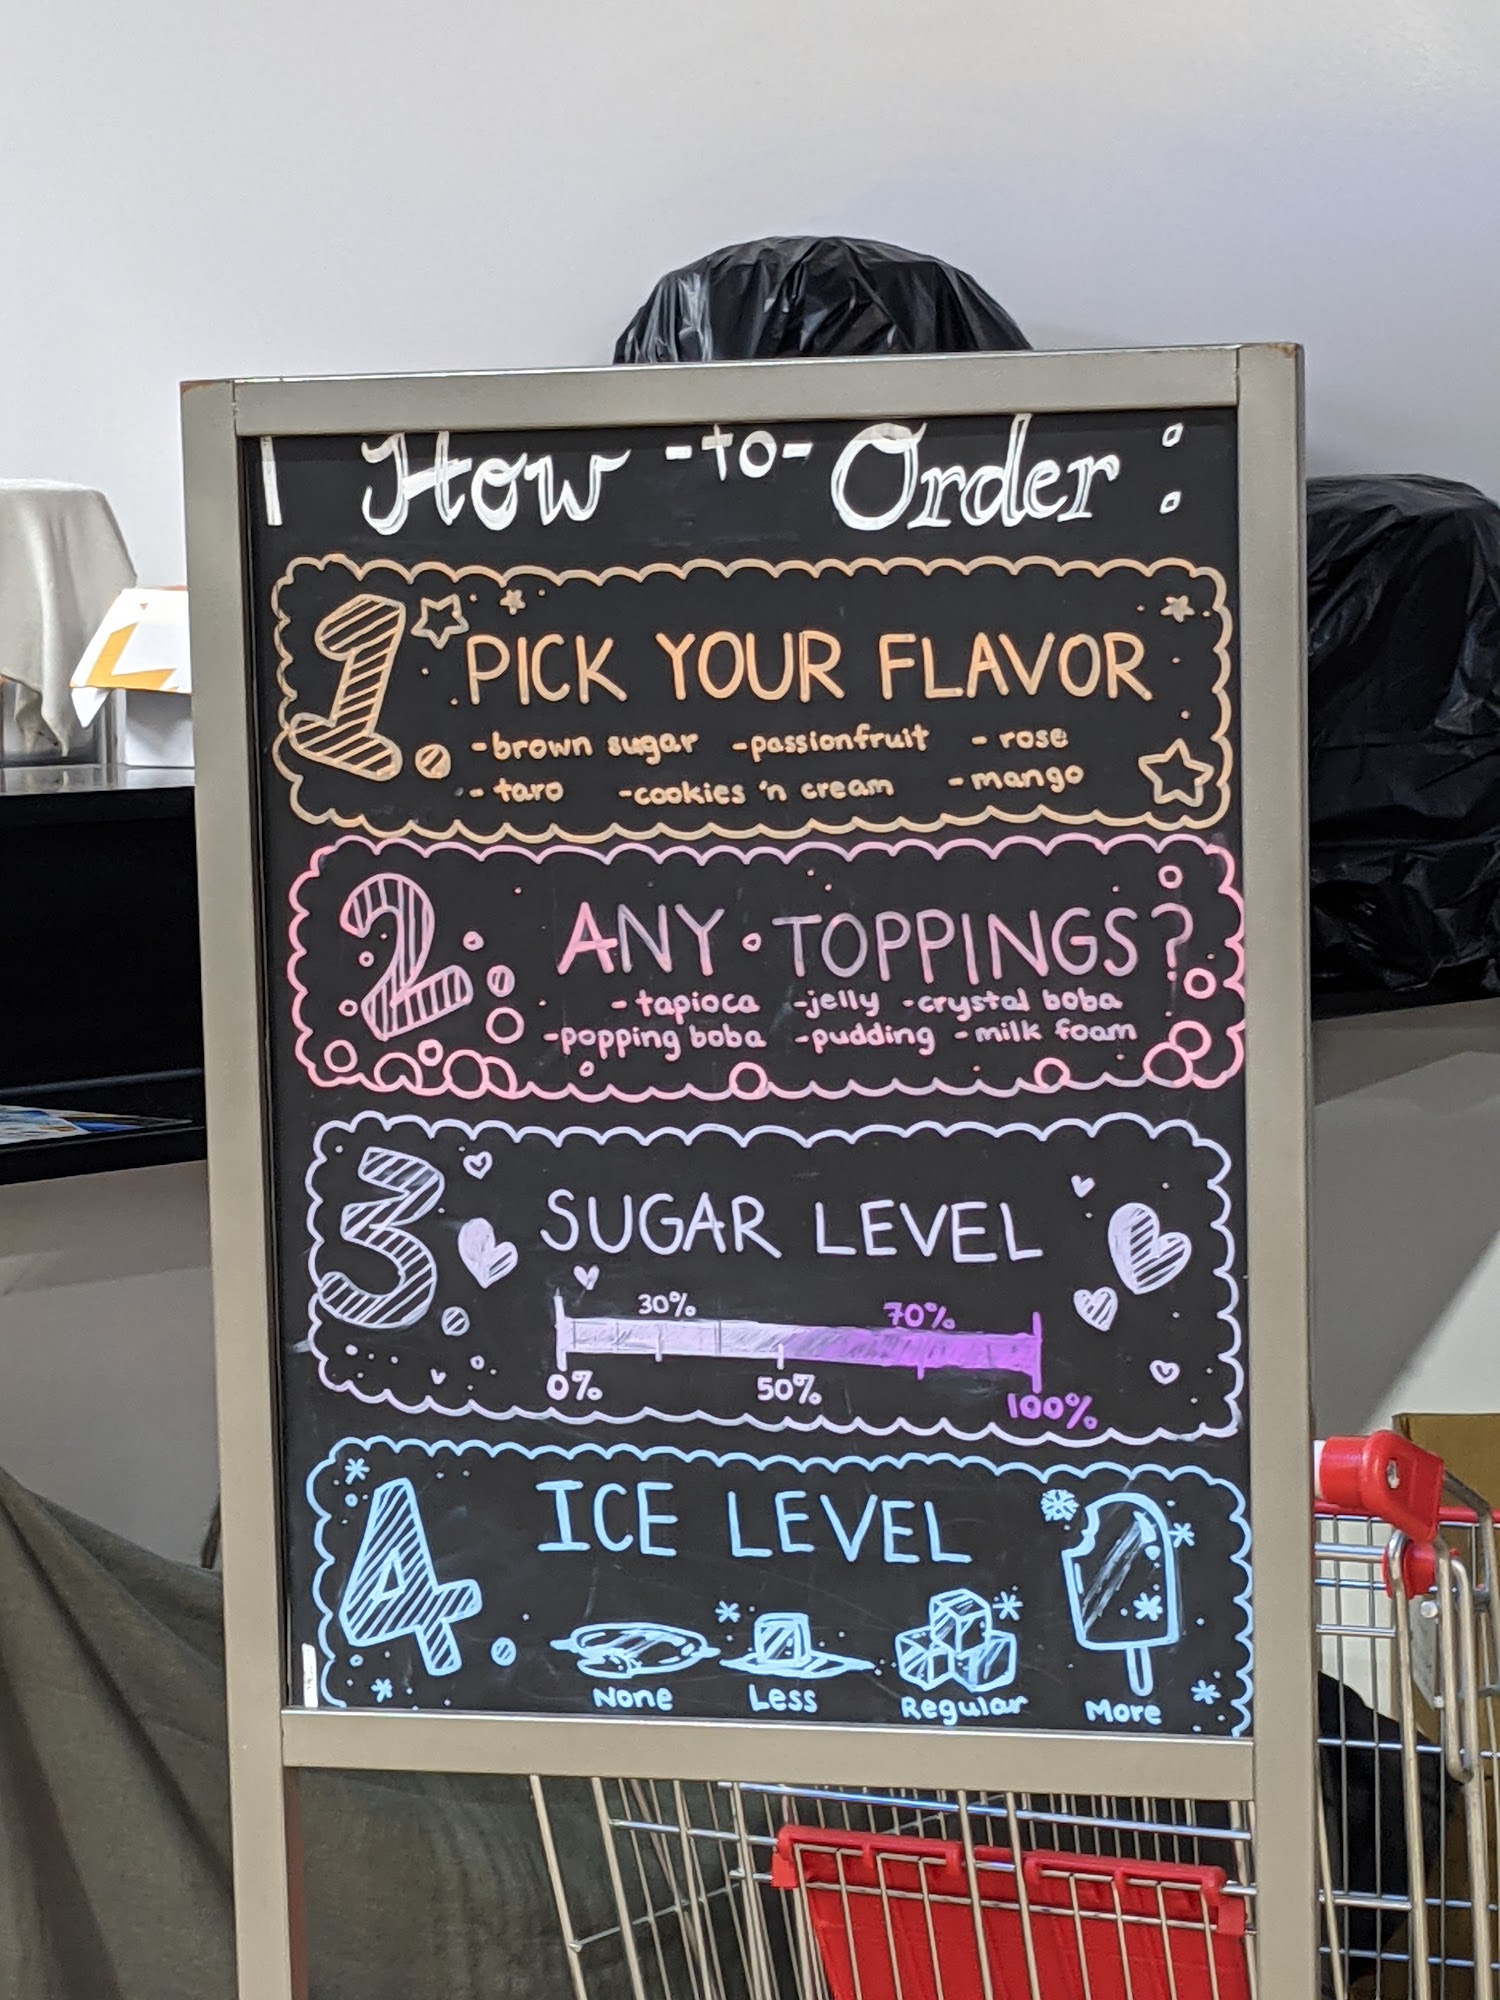 How -to- Order:
1. PICK YOUR FLAVOR
-brown sugar -passionfruit - rose
- taro -cookies 'n cream - mango
2. ANY TOPPINGS?
- tapioca -jelly -crystal boba
-popping boba -pudding - milk foam
3. SUGAR LEVEL
30% 70%
0% 50% 100%
4. ICE LEVEL
None Less Regular More